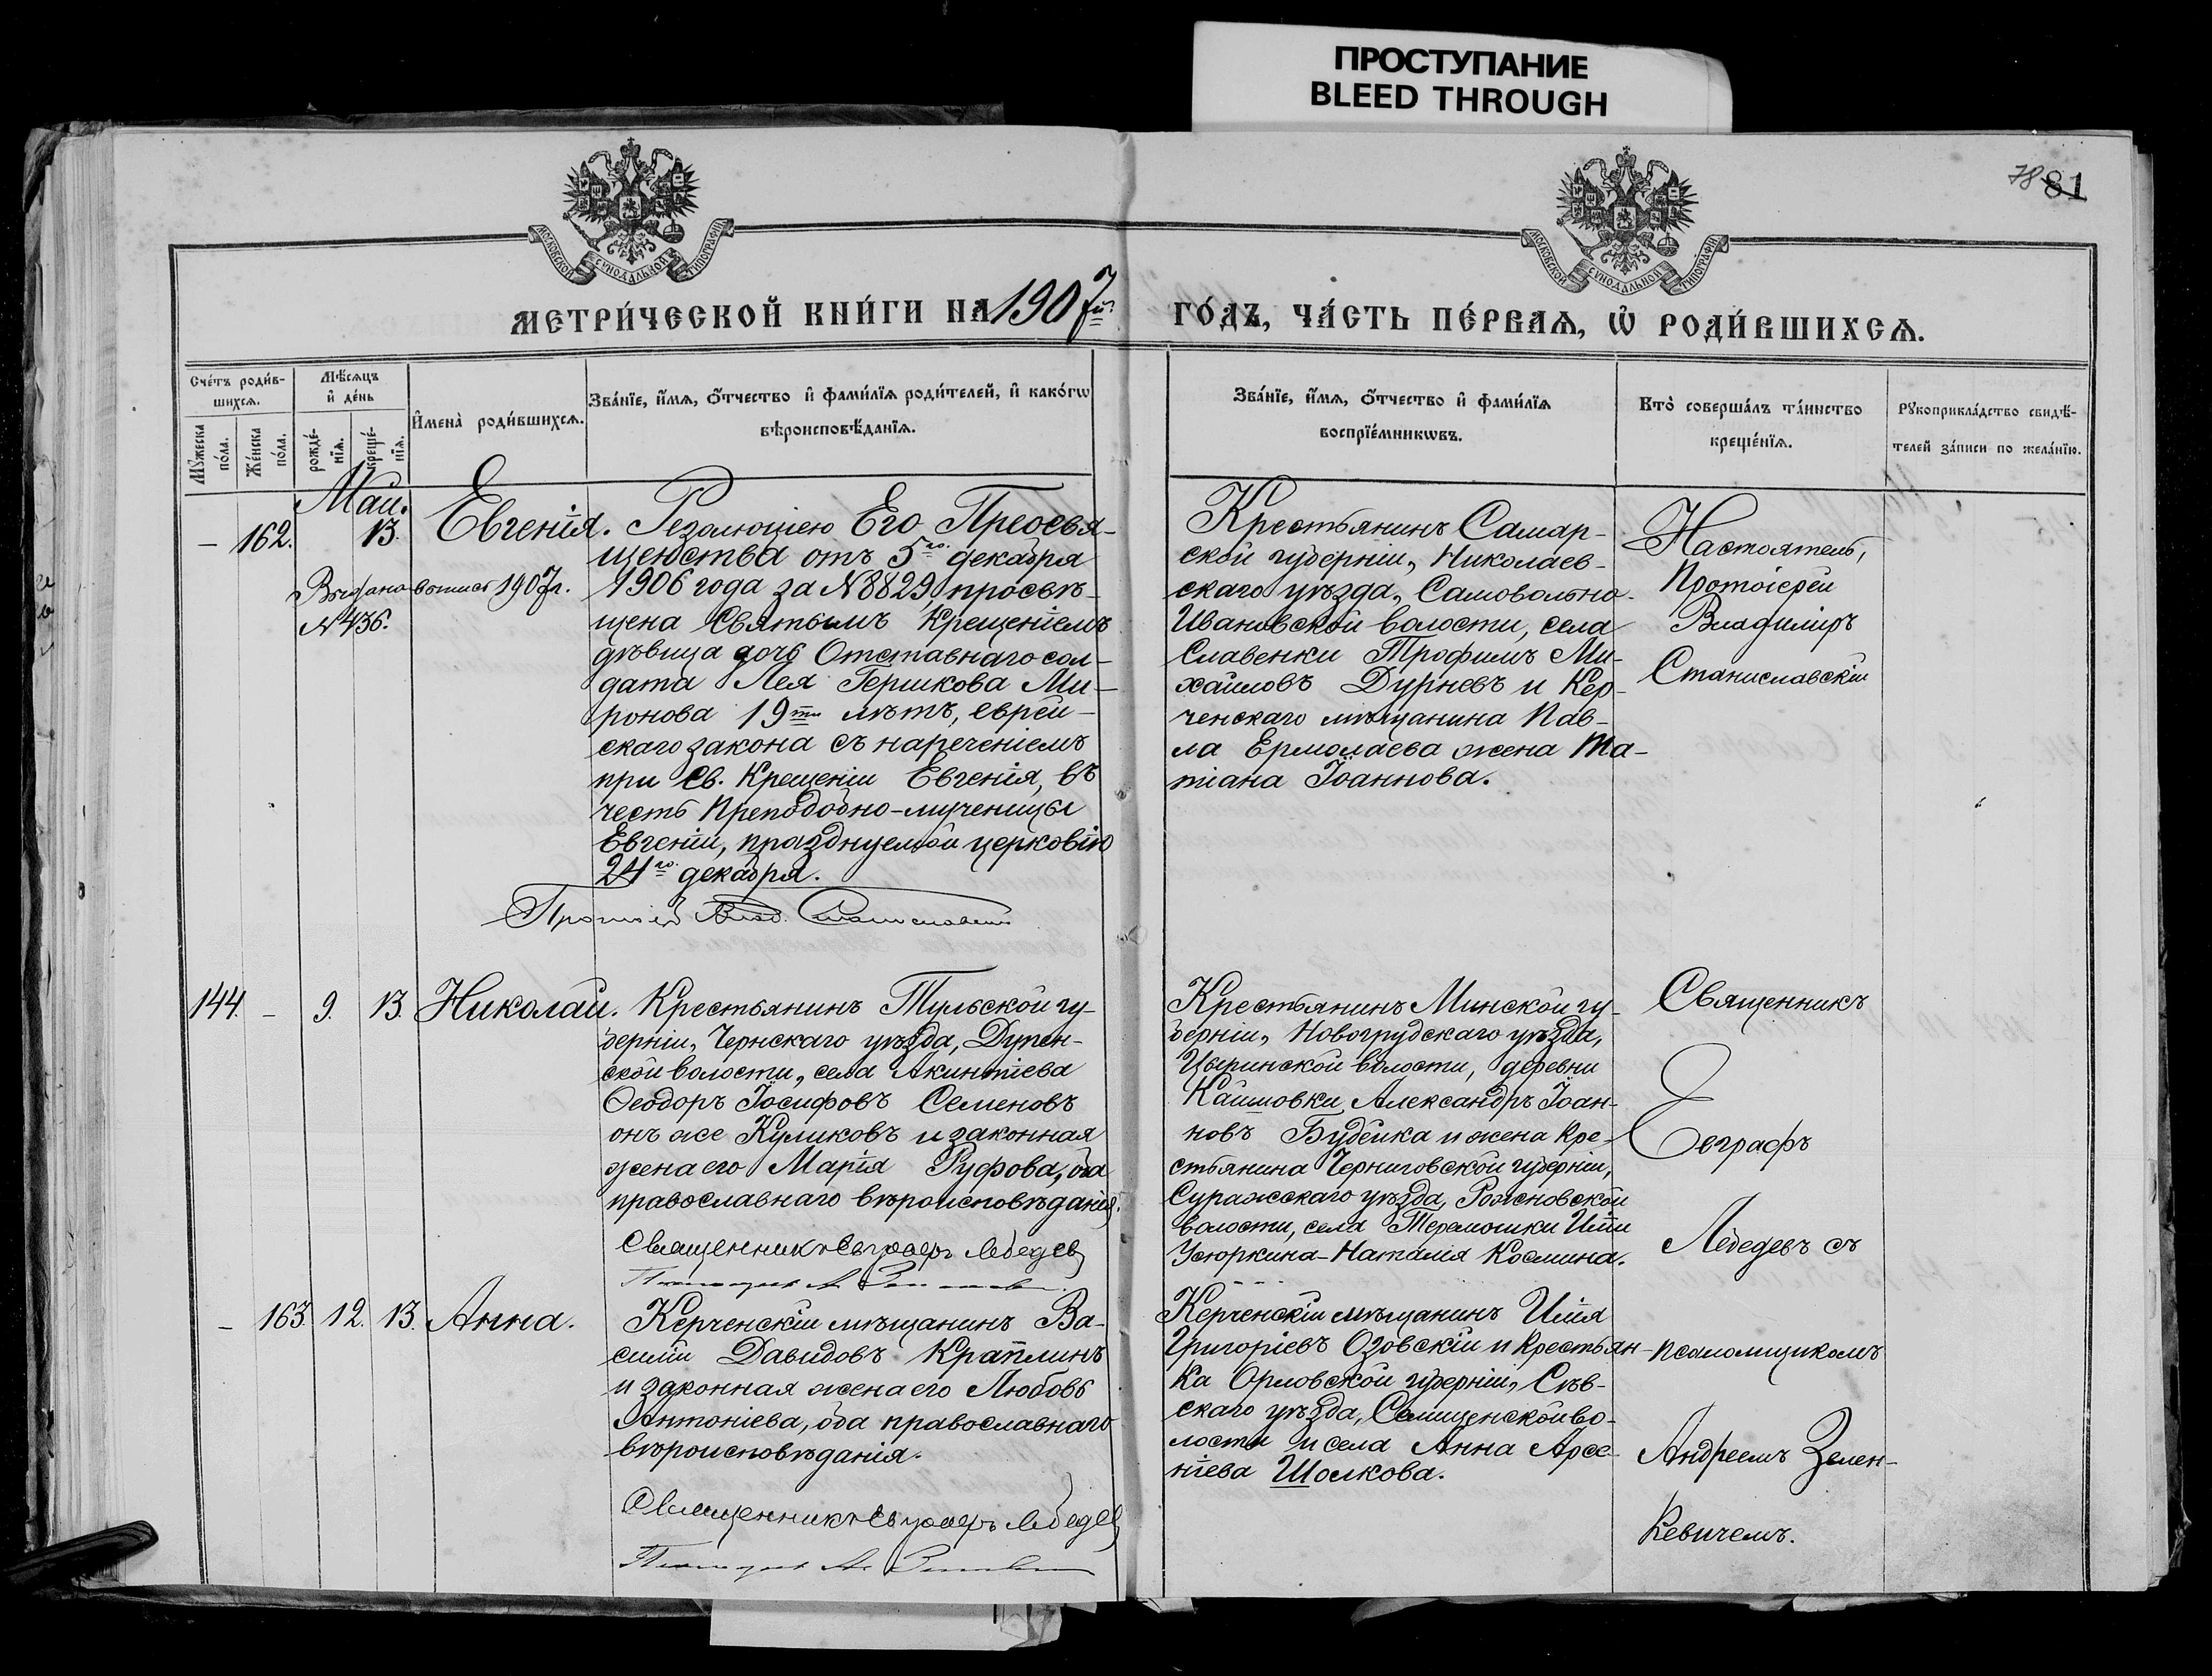 ПРОСТУПАНИЕ
BLEED THROUGH
78 81
МОСКОВСКОЙ СѴНОДАЛЬНОЙ ТИПОГРАФІИ
МОСКОВСКОЙ СѴНОДАЛЬНОЙ ТИПОГРАФІИ
МЕТРИ́ЧЕСКОЙ КНИ́ГИ НА 1907й
ГО́ДЪ, ЧА́СТЬ ПЕ́РВАѦ, Ѡ҆ РОДИ́ВШИХСѦ.
Сче́тъ роди́в-
шихсѧ.
Мꙋ́жеска по́ла.
Же́нска по́ла.
Мѣ́сѧцъ
и҆ де́нь
рожде́-
нїѧ.
креще́-
нїѧ.
И҆мена̀ роди́вшихсѧ.
Зва́нїе, и҆́мѧ, ѻ҆́тчество и҆ фами́лїѧ роди́телей, и҆ како́гѡ
вѣроисповѣ́данїѧ.
Зва́нїе, и҆́мѧ, ѻ҆́тчество и҆ фами́лїѧ
воспрїе́мникѡвъ.
Кто̀ соверша́лъ та́инство
креще́нїѧ.
Рꙋкоприкла́дство свидѣ́-
телей за́писи по жела́нїю.
Май.
– 162. 13. Евгенія.
Выдана выпись 1907 г.
№ 436.
Резолюціею Его Преосвя-
щенства отъ 5го декабря
1906 года за № 8829, просвѣ-
щена Святымъ Крещеніемъ
дѣвица дочь Отставнаго сол-
дата Лея Гершкова Ми-
ронова 19ти лѣтъ, еврей-
скаго закона съ нареченіемъ
при Св. Крещеніи Евгенія, въ
честь Преподобно-мученицы
Евгеніи, празднуемой церковію
24го декабря.
Протоіер Влад. Станиславскій
Крестьянинъ Самар-
ской губерніи, Николаев-
скаго уѣзда, Самовольно-
Ивановской волости, села
Славенки Трофимъ Ми-
хайловъ Дурневъ и Кер-
ченскаго мѣщанина Пав-
ла Ермолаева жена Та-
тіана Іоаннова.
Настоятель,
Протоіерей
Владиміръ
Станиславскій
144. – 9. 13. Николай.
Крестьянинъ Тульской гу-
берніи, Чернскаго уѣзда, Дупен-
ской волости, села Акинтіева
Ѳеодоръ Іосифовъ Семеновъ
онъ же Куликовъ и законная
жена его Марія Руфова, оба
православнаго вѣроисповѣданія.
Священникъ Евграфъ Лебедев
Крестьянинъ Минской гу-
берніи, Новогрудскаго уѣзда,
Цыринской волости, деревни
Кайшовки, Александръ Іоан-
новъ Будейка и жена Кре-
стьянина Черниговской губерніи,
Суражскаго уѣзда, Рожновской
волости, села Теремошки Иліи
Усюркина-Наталія Космина.
Священникъ
Евграфъ
Лебедевъ съ
псаломщикомъ
Андреемъ Зелен-
кевичемъ.
– 163. 12. 13. Анна.
Керченскій мѣщанинъ Ва-
силій Давидовъ Краплинъ
и законная жена его Любовь
Антоніева, оба православнаго
вѣроисповѣданія.
Священникъ Евграфъ Лебедев
Керченскій мѣщанинъ Илія
Григоріевъ Озовскій и крестьян-
ка Орловской губерніи, Сѣв-
скаго уѣзда, Селищенской во-
лости и села Анна Арсе-
ніева Шолкова.